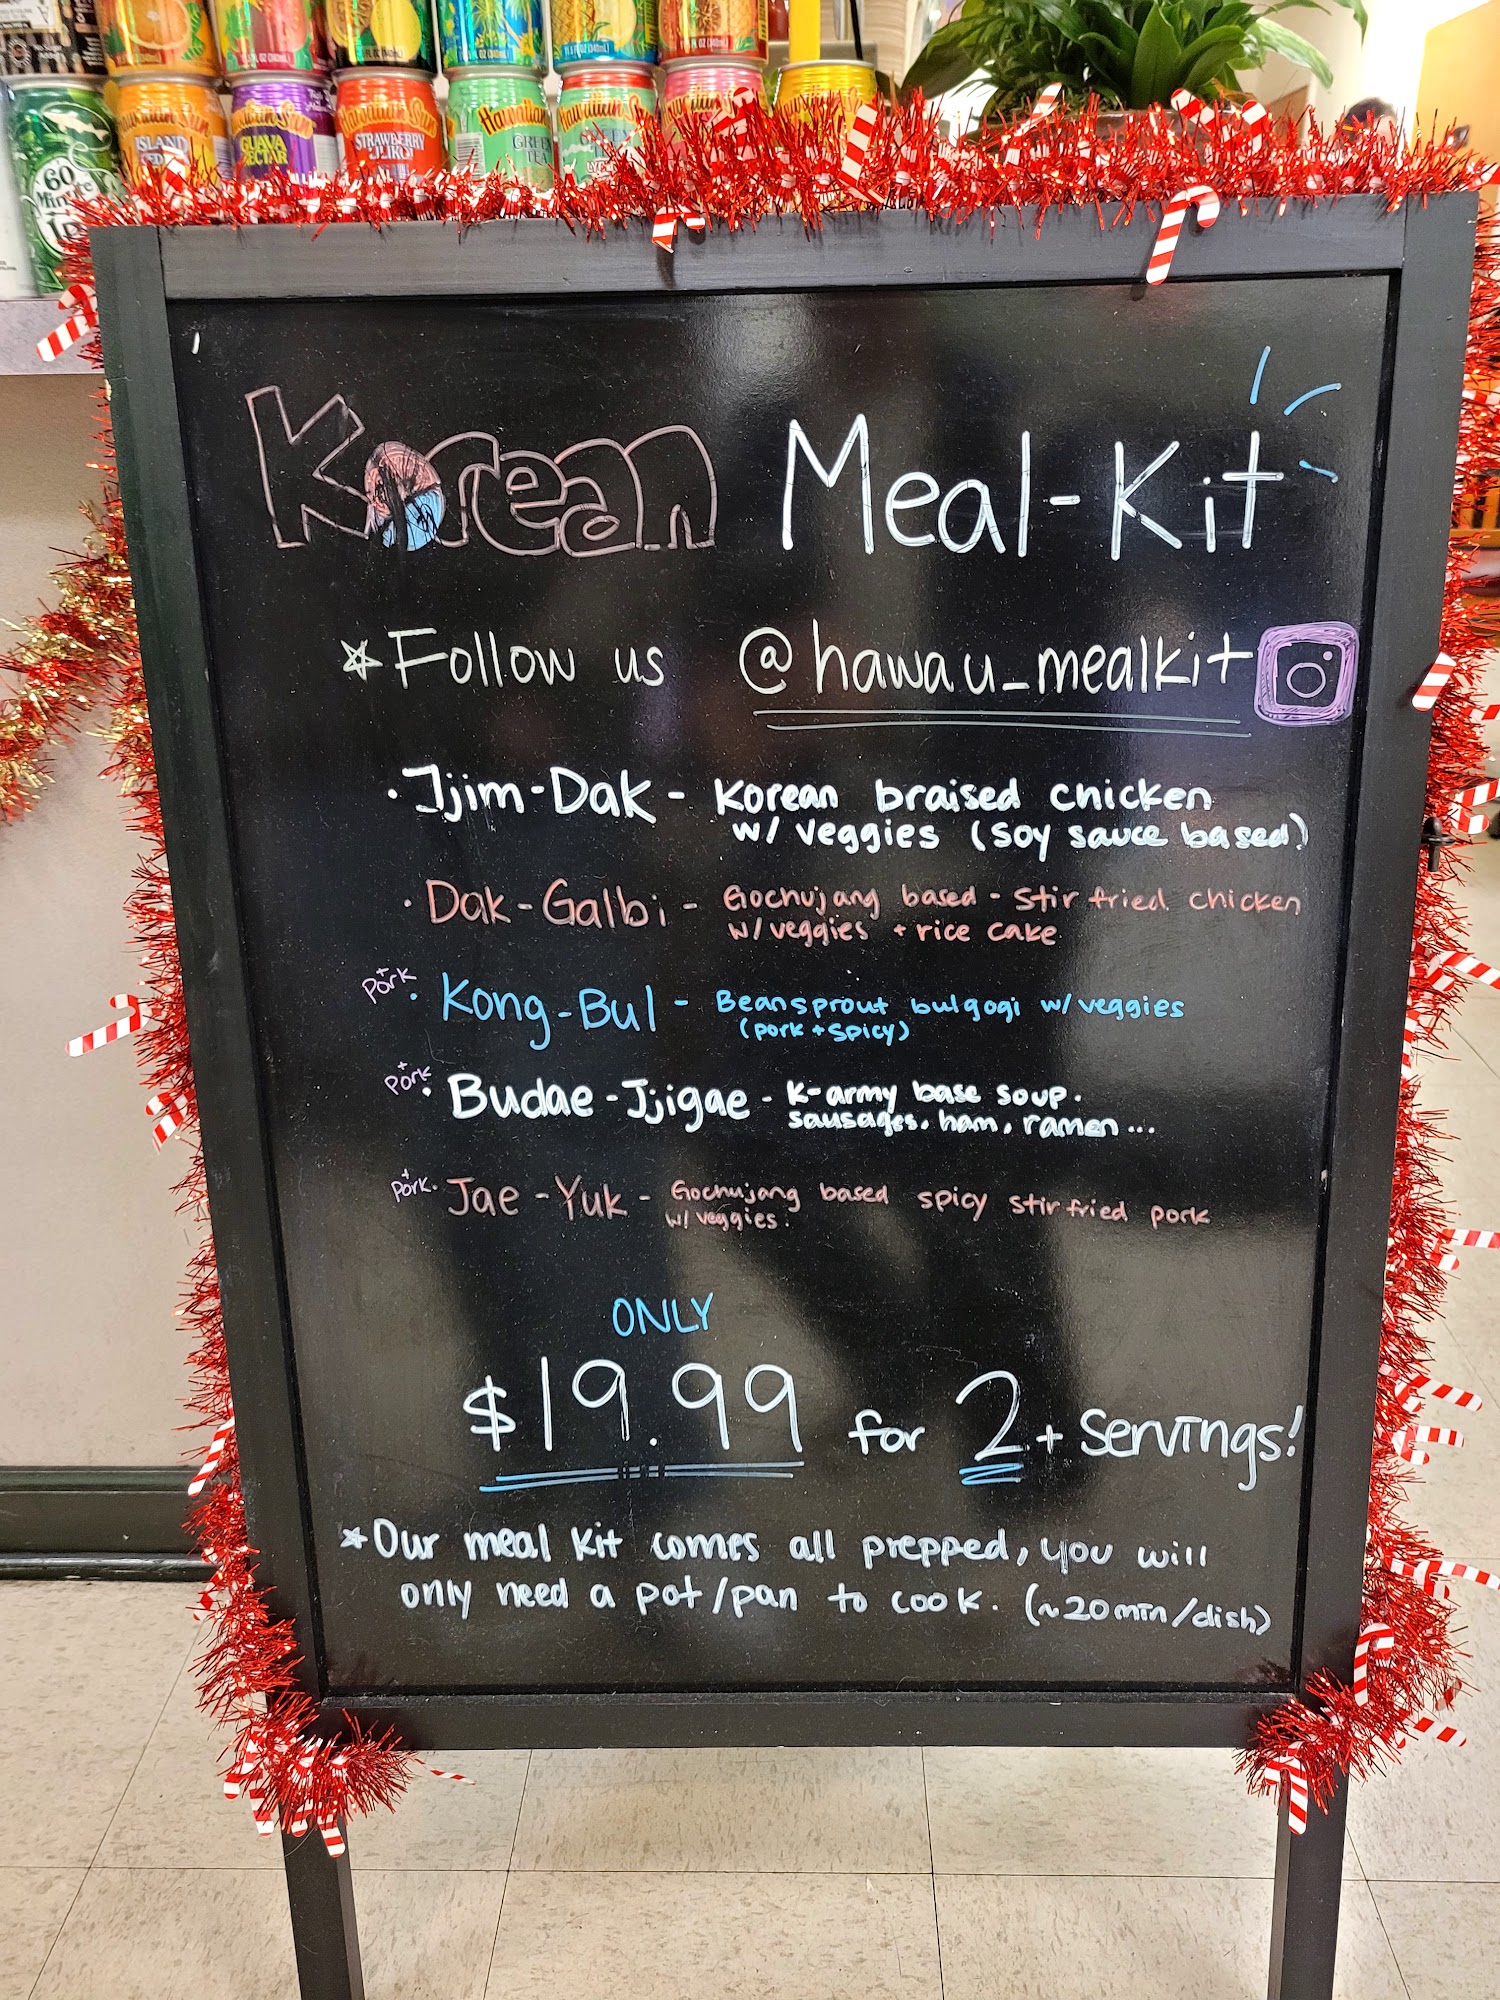 11.5 FL OZ (340mL)
FL OZ (340mL)
Hawaiian Sun
ISLAND
Hawaiian Sun
GUAVA
NECTAR
Hawaiian Sun
STRAWBERRY
Hawaiian
GREEN
TEA
Hawaiian Sun
60
Minute
Korean Meal-Kit
Follow us @hawau_mealkit
· Jjim-Dak - Korean braised chicken
w/ veggies (soy sauce based)
· Dak-Galbi - Gochujang based - stir fried chicken
w/ veggies + rice cake
+
Pork · Kong-Bul - Beansprout bulgogi w/ veggies
(pork + spicy)
+
Pork · Budae-Jjigae - K-army base soup.
sausages, ham, ramen...
+
Pork · Jae-Yuk - Gochujang based spicy stir fried pork
w/ veggies.
ONLY
$19.99 for 2+ servings!
* Our meal kit comes all prepped, you will
only need a pot/pan to cook. (~20min/dish)